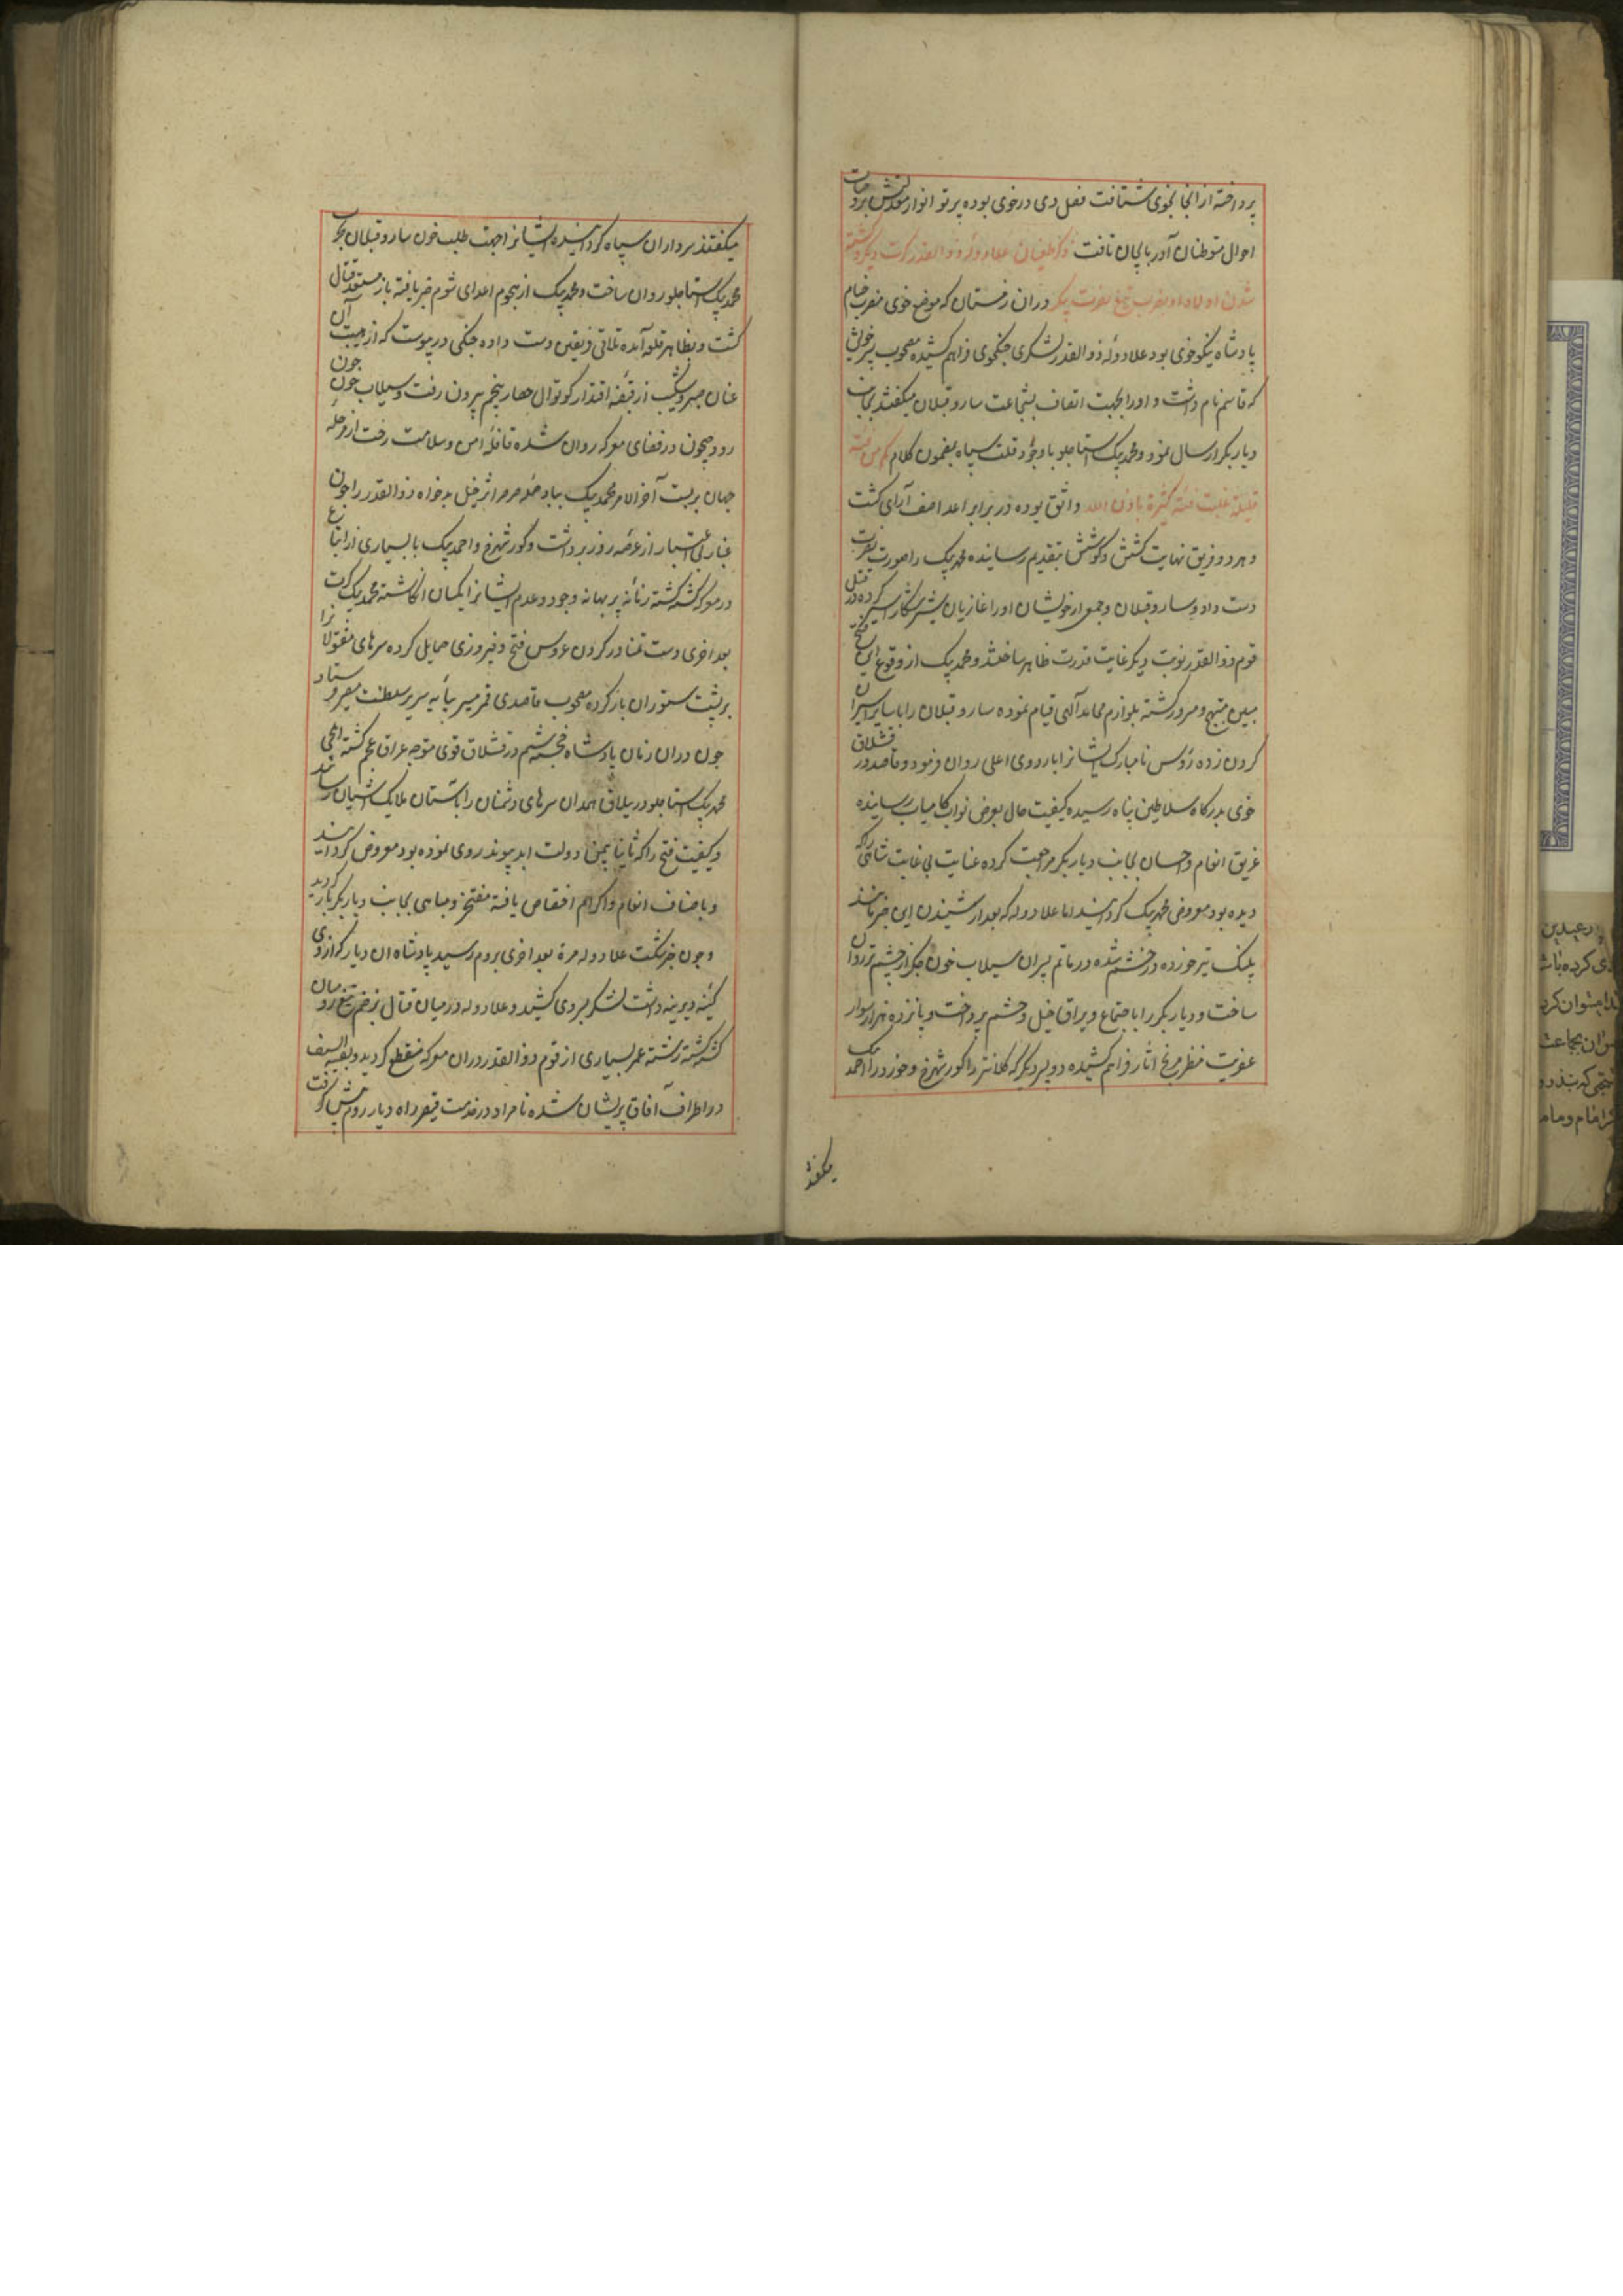 پرداخته از انجا بخوی شتافت فصل دی در خوی بوده پرتو انوار مقدمش بر وجنات
احوال متوطنان آذربایجان تافت ذکر طغیان علاء دوله ذوالقدر کرت دیگر و کشته
شدن اولاد او بضرب تیغ نصرت پیکر دران زمستان که موضع خوی مضرب خیام
پادشاه نیکو خوی بود علاء دوله ذوالقدر لشکری جنکجوی فراهم کشیده مصحوب پسر خویش
که قاسم نام داشت و اورا بجهت اتصاف بشجاعت ساروقپلان میکفتند بجانب
دیاربکر ارسال نمود و محمدبیک استاجلو باوجود قلت سپاه بمضمون کلام کم من فئة
قلیلة غلبت فئة کثیرة باذن الله واثق بوده در برابر اعدا صف آرای کشت
و هر دو فریق نهایت کشش و کوشش بتقدیم رسانیده محمدبیک را صورت نصرت
دست داد و ساروقپلان و جمعی از خویشان اورا غازیان شیرشکار اسیر کرده در قتل
قوم ذوالقدر نوبت دیکر غایت قدرت ظاهر ساختند و محمدبیک از وقوع این فتح
مبین مبتهج و مسرور کشته بلوازم محامد آلهی قیام نموده ساروقپلان را با سایر اسیران
کردن زده رؤس نامبارک ایشانرا باردوی اعلی روان فرمود و قاصد در قشلاق
خوی بدرکاه سلاطین پناه رسیده کیفیت حال بعرض نواب کامیاب رسانیده
غریق انعام و احسان بجانب دیاربکر مراجعت کرده عنایت بی غایت شاهی راکه
دیده بود معروض محمدبیک کردانید اما علاء دوله که بعد از شنیدن این خبر مانند
پلنک تیر خورده در خشم شده در ماتم پسران سیلاب خون جکر از چشم تر روان
ساخت و دیاربکر را باجتماع و یراق خیل و حشم پرداخت و پانزده هزار سوار
عفریت منظر مریخ آثار فراهم کشیده دو پسر دیکر که کلانتر را کورشهرخ و خوردرا احمدبیک
میکفتند
میکفتند سرداران سپاه کردانیده ایشانرا جهت طلب خون ساروقپلان بحرب
محمدبیک استاجلو روان ساخت و محمدبیک از هجوم اعدای شوم خبر یافته باز مستعد قتال
کشت و بظاهر قلعه آمده تلاقی فریقین دست داده جنکی در پیوست که از هیبت آن
عنان صبر و شکیب از قبضه اقتدار کوتوال حصار پنجم بیرون رفت و سیلاب خون چون
رود جیحون در فضای معرکه روان شده قافله امن و سلامت رخت از مرحله
جهان بربست آخر الامر محمدبیک بباد حمله صرصر اثر خیل بدخواه ذوالقدر را چون
غبار بی اعتبار از عرصه روزبرداشت و کورشهرخ و احمدبیک با بسیاری از اتباع
در معرکه کشته کشته زمانه پر بهانه وجود و عدم ایشانرا یکسان انکاشته محمدبیک کرت
بعد اخری دست تمنا در کردن عروس فتح و فیروزی حمایل کرده سرهای مقتولانرا
بر پشت ستوران بار کرده مصحوب قاصدی قمر مسیر بپایه سریر سلطنت مصیر فرستاد
چون دران زمان پادشاه خجسته شیم از قشلاق خوی متوجه عراق عجم کشته ایلچی
محمدبیک استاجلو در ییلاق همدان سرهای دشمنان را باستان ملایک اشیان رسانید
و کیفیت فتح راکه ثانیا بیمن دولت ابد پیوند روی نموده بود معروض کردانید
و باصناف انعام و اکرام اختصاص یافته مفتخر و مباهی بجانب دیاربکر بازکردید
و چون خبر شکست علاء دوله مرة بعد اخری بروم رسید پادشاه ان دیار که ازوی
کینه دیرینه داشت لشکر بروی کشید و علاء دوله در میان قتال بزخم تیغ رومیان
کشته کشته رشته عمر بسیاری از قوم ذوالقدر دران معرکه منقطع کردید و بقیة السیف
در اطراف آفاق پریشان شده نامراد در خدمت قیصر راه دیار روم پیش کرفت